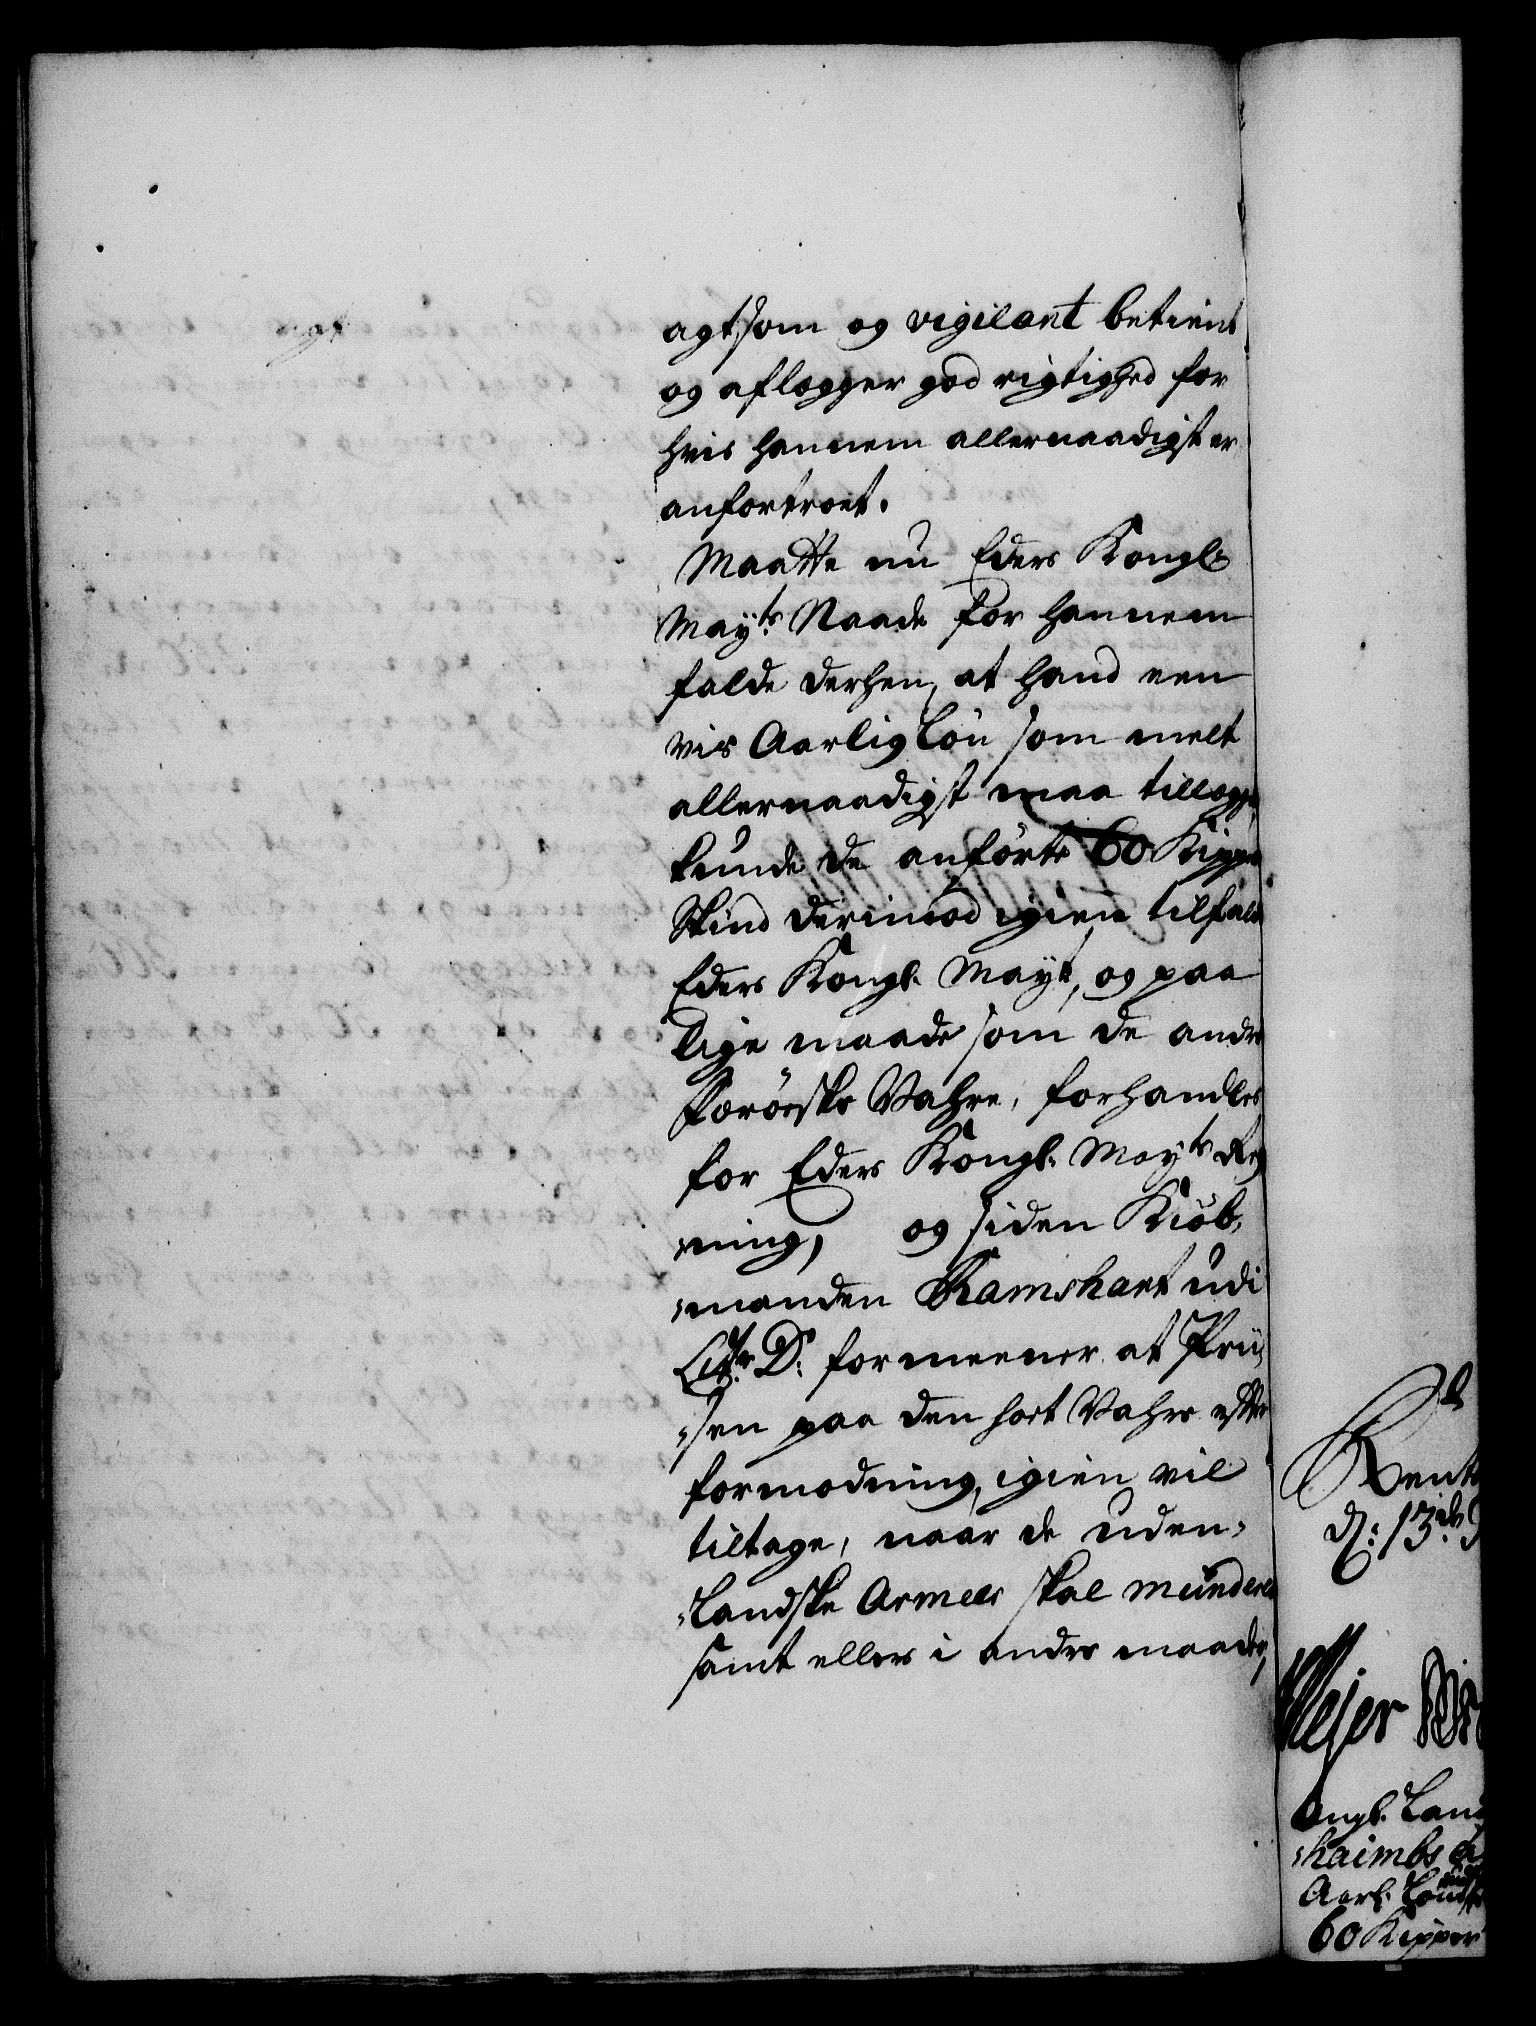 agtsom og vigilant betient
og aflegger god rigtighed for
hvis hannem allernaadigst er
anfortroet.
Maatte nu Eders Kongl:
Mayts Naade for hannem
falde derhen, at hand een
vis Aarlig Løn som melt
allernaadigst maa tillegges
kunde de anførte 60 Kipper
Skind derimod igien tilfalde
Eders Kongl. Mayt, og paa
lige maade som de andre
Færøeske Vahre, forhandles
for Eders Kongl. Mayts Reg
ning, og siden Kiøb,
manden Ramshart udi
Litr D: formeener at Prii,
sen paa den sort Vahre efter
formodning, igien vil
tiltage, naar de uden,
landske Armeer skal munderes
samt ellers i andre maader,
Rent
d: 13de
Kongl. Land
haimbs
Aarl. Løn
60 Kipper